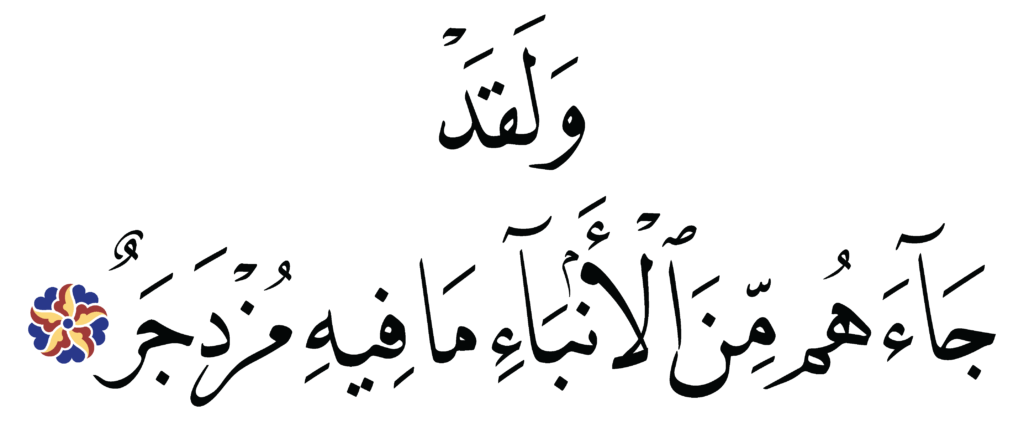 وَلَقَدْ
جَآءَهُم مِّنَ ٱلْأَنۢبَآءِ مَا فِيهِ مُزْدَجَرٌ